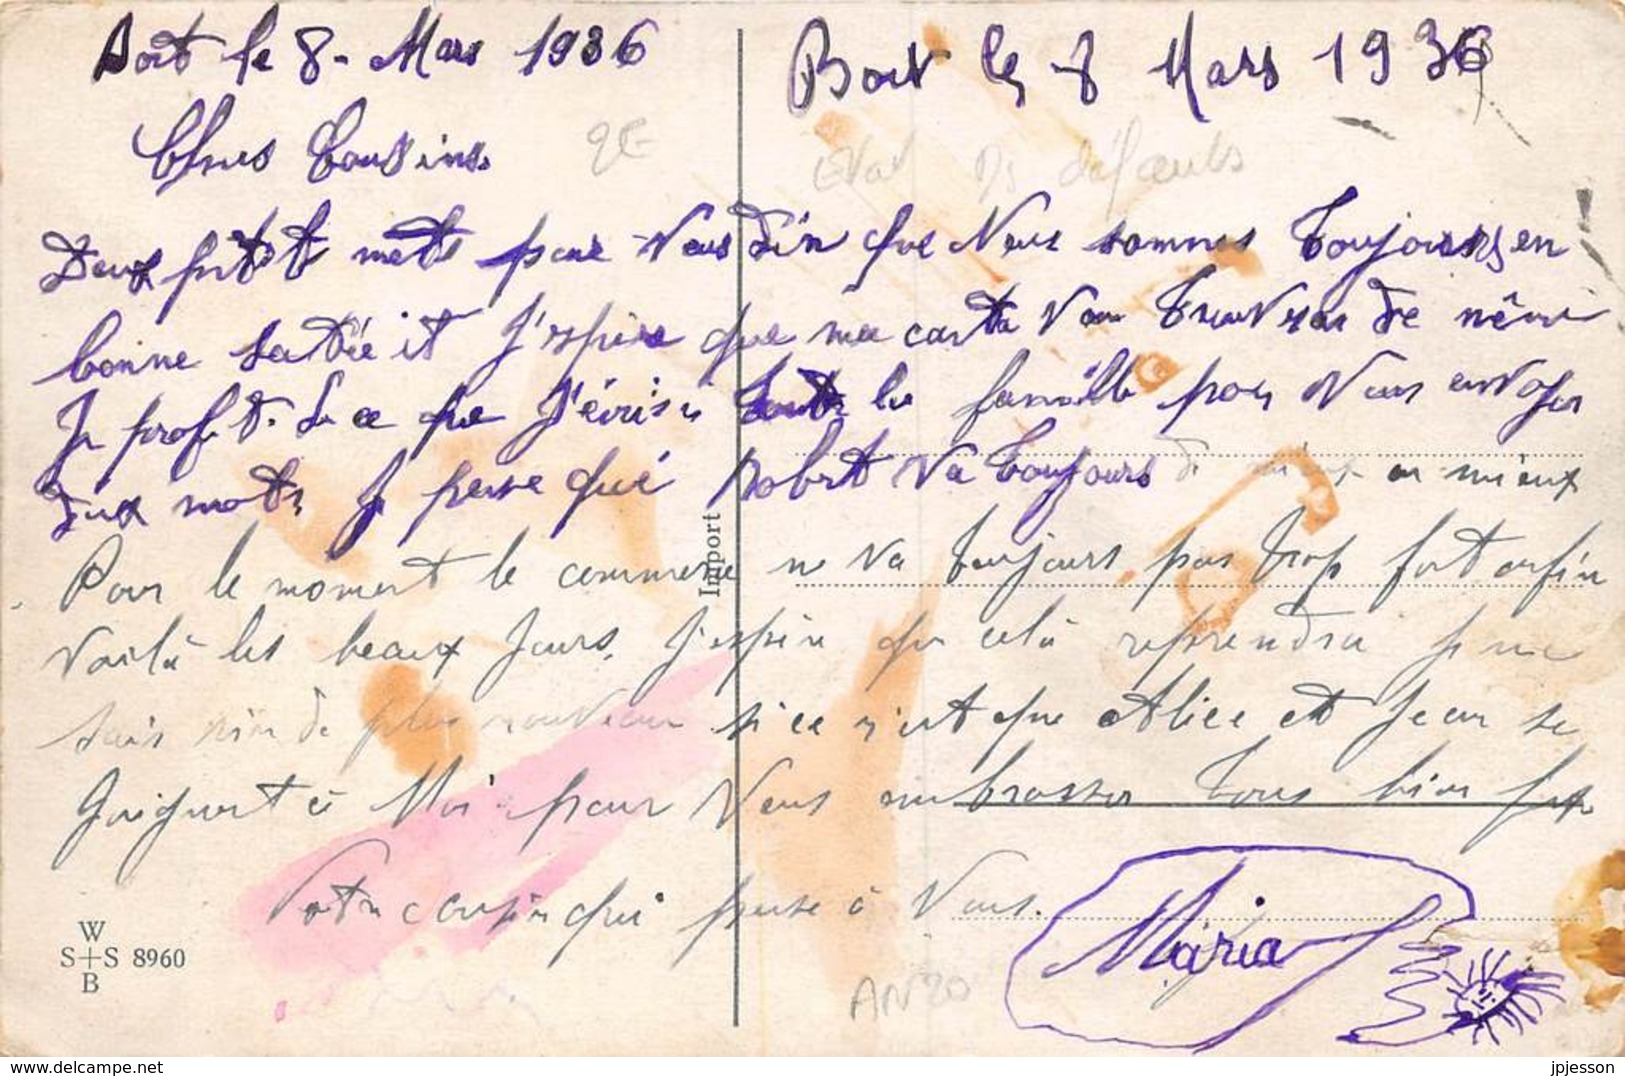 Bort le 8. Mars 1936
Bort le 8 Mars 1936
Chers Cousins
2E
Etat Ds défauts
Deux petit mots pour vous dire que Nous sommes Toujours en
bonne santée et J'espère que ma carte Vous Trouveras de même
Je profit. de ce que J'écris à toute la famille pour Vous envoyer
deux mots, Je pense que Robert va toujours de mieux en mieux
Pour le moment le commerce ne va toujours pas trop fort enfin
Voilà les beaux Jours. J'espère que celà reprendra je ne
sais rien de plus nouveau si ce n'est que Alice et Jean se
Joignent à Moi pour Vous embrasser Tous bien fort
Votre cousine qui pense à Vous.
Maria
Import
W
S+S 8960
B
AN20
jpjesson